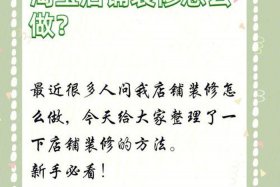 淘宝店铺装修怎么
做?
最近很多人问我店铺装修怎
么做，今天给大家整理了一
下店铺装修的方法。
新手必看！